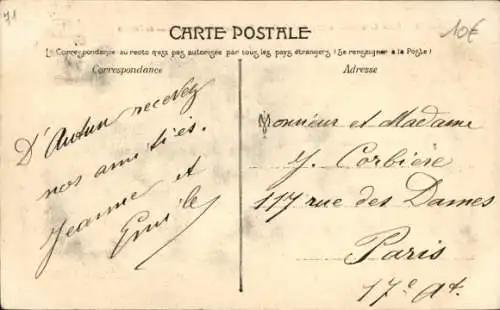 71
10€
CARTE POSTALE
La Correspondance au recto n'est pas autorisée par tous les pays étrangers (Se renseigner à la Poste)
Correspondance
Adresse
D'Autun recevez
nos amitiés.
Jeanne et
Emile
Monsieur et Madame
J. Corbière
117 rue des Dames
Paris
17e At.